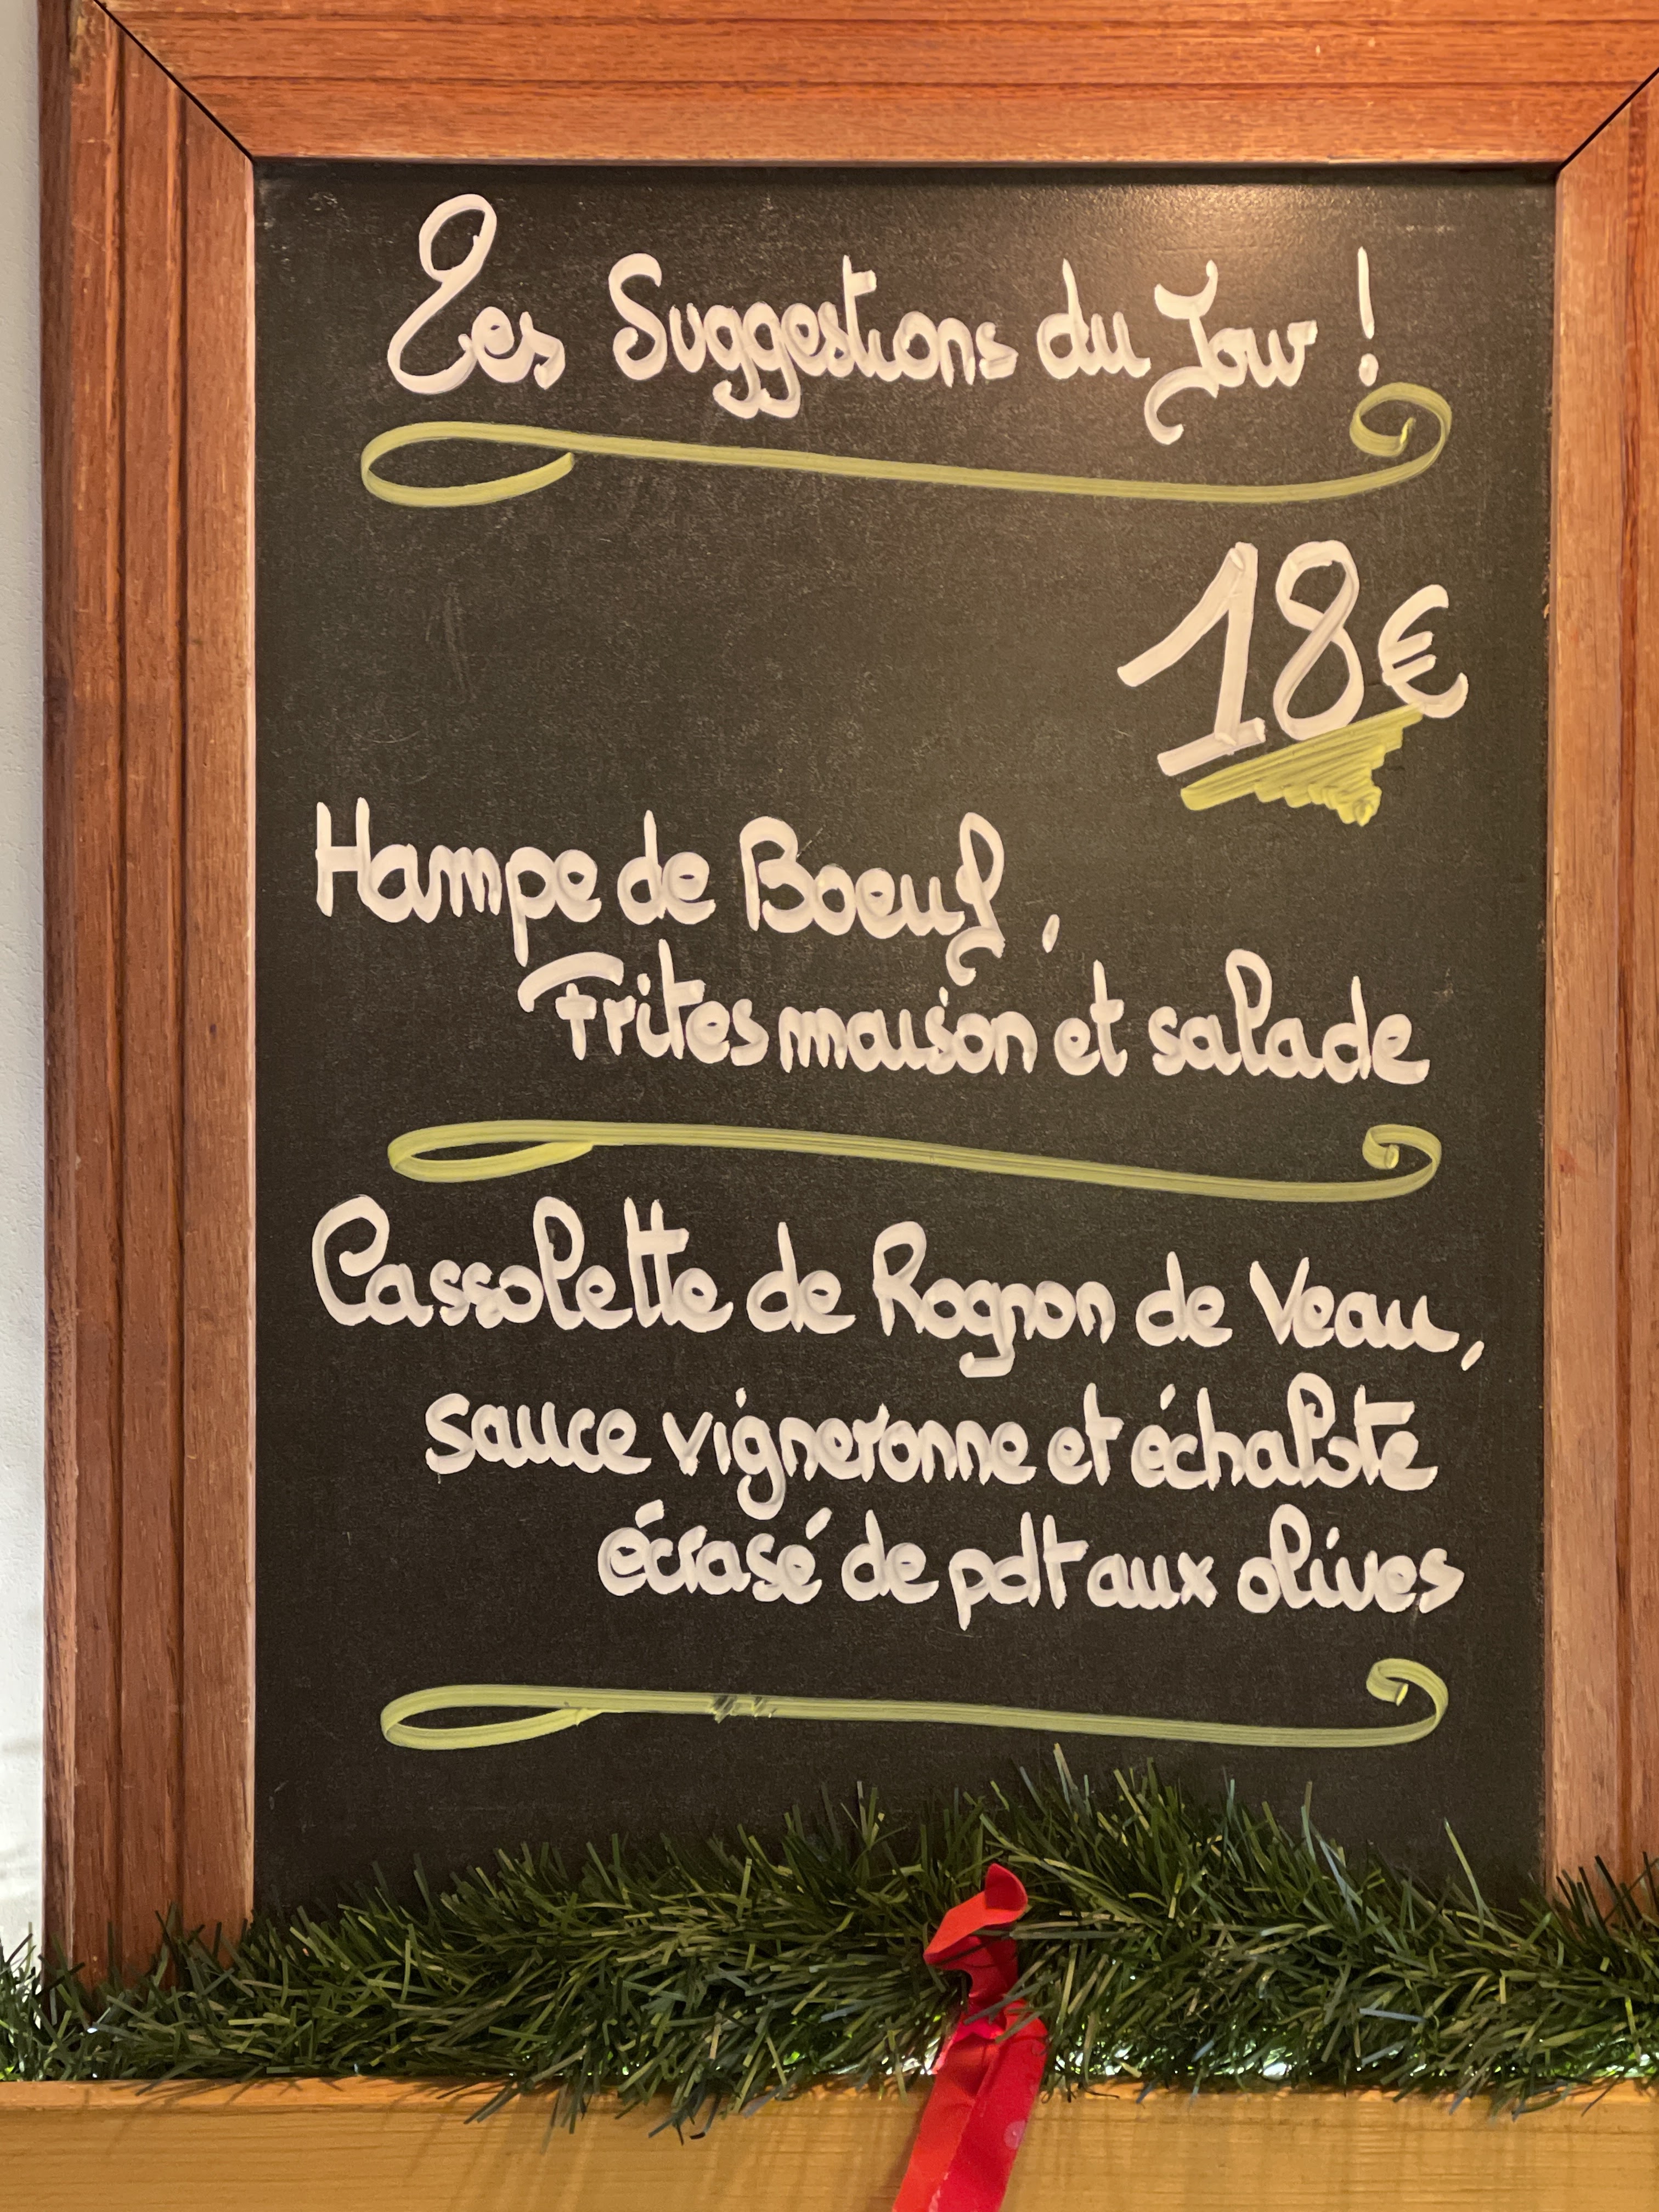 Les Suggestions du Jour !
18€
Hampe de Boeuf,
Frites maison et salade
Cassolette de Rognon de Veau,
sauce vigneronne et échalote
écrasé de pdt aux olives